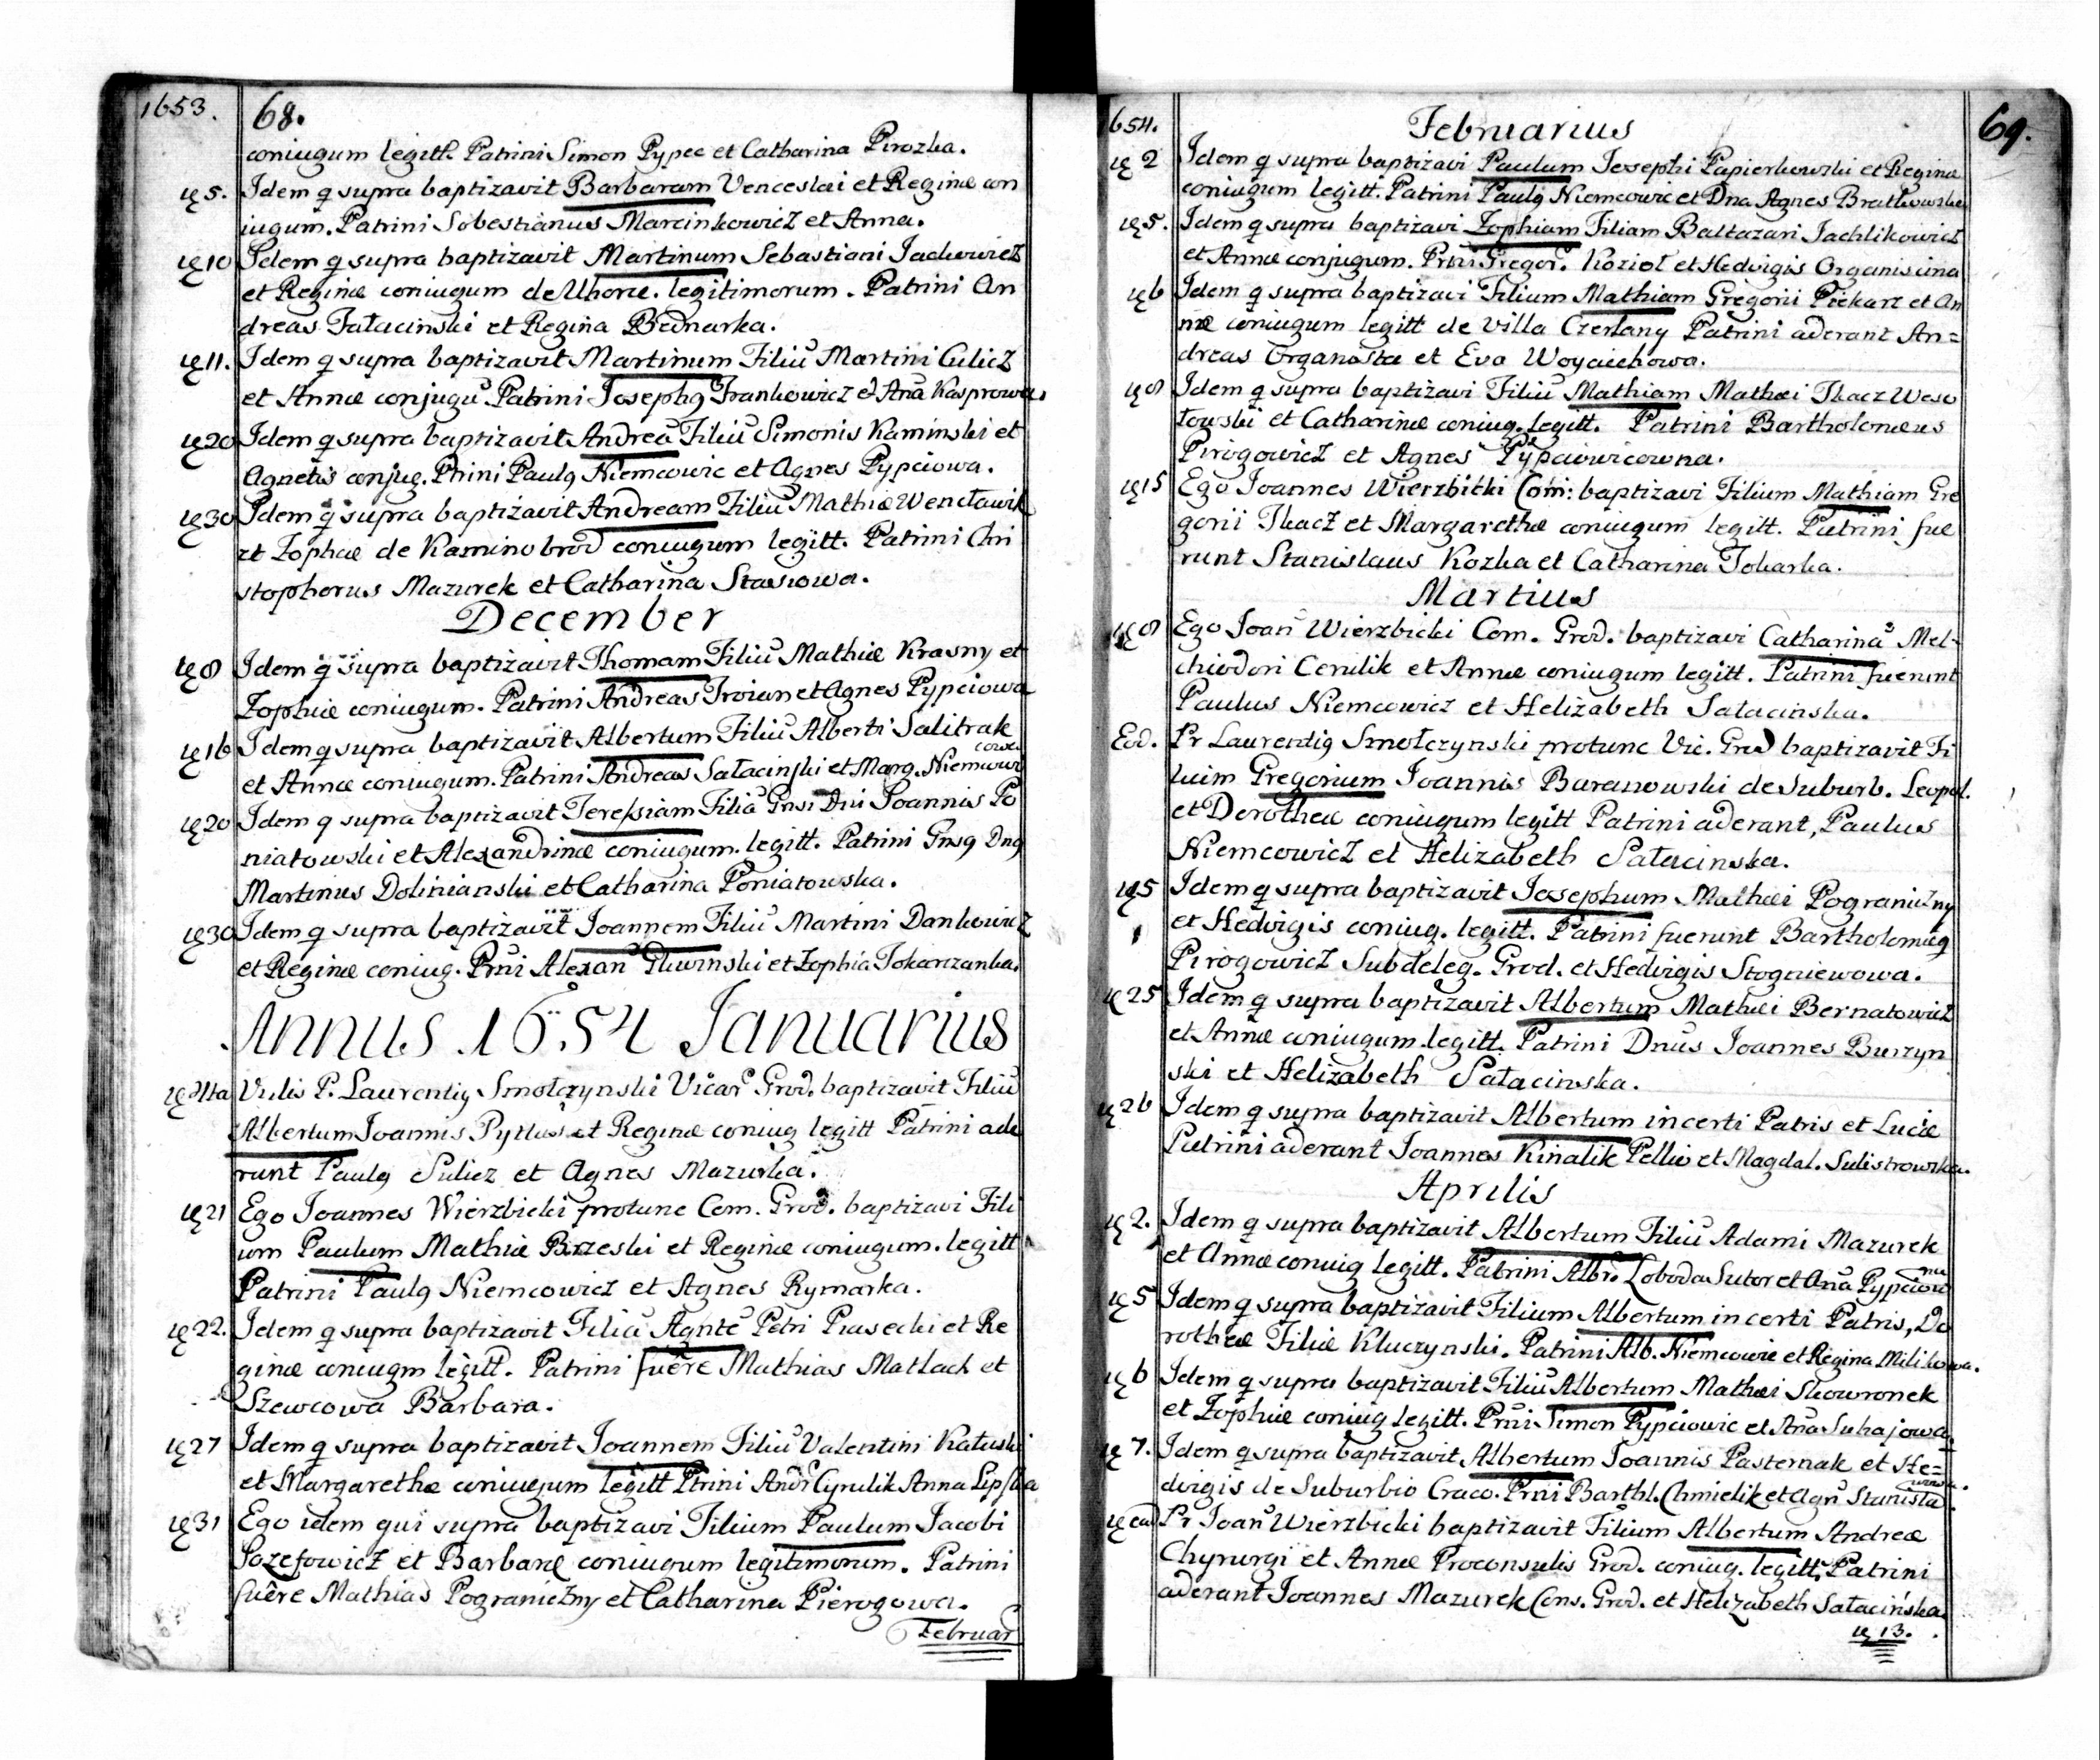 1653. 68.
coniugum legitt. Patrini Simon Pypec et Catharina Pirozka.
5. Idem q supra baptizavit Barbaram Venceslai et Reginæ con
iugum. Patrini Sobestianus Marcinkowicz et Anna.
10 Idem q supra baptizavit Martinum Sebastiani Jackowicz
et Reginæ coniugum de Uhorce. legitimorum. Patrini An
dreas Sałacinski et Regina Bednarka.
11. Idem q supra baptizavit Martinum Filiū Martini Culicz
et Annæ conjugū Patrini Josephg Frankowicz et Aña Kasprowa.
20 Idem q supra baptizavit Andreā Filiū Simonis Kaminski et
Agnetis conjug. Ptrini Paulg Niemcowic et Agnes Pypciowa.
30 Idem q supra baptizavit Andream Filiū Mathiæ Wencławik
et Zophiæ de Kaminobrod coniugum legitt. Patrini Chri
stophorus Mazurek et Catharina Stasiowa.
December
8 Idem q supra baptizavit Thomam Filiū Mathiæ Krasny et
Zophiæ coniugum. Patrini Andreas Troian et Agnes Pypciowa
16 Idem q supra baptizavit Albertum Filiū Alberti Salitrak
et Annæ coniugum. Patrini Andreas Sałacinski et Marg. Niemcowi
cowa
20 Idem q supra baptizavit Teressiam Filiā Gnsi Dni Joannis Po
niatowski et Alexandrinæ coniugum. legitt. Patrini Gnsg Dng
Martinus Dolinianski et Catharina Poniatowska.
30 Idem q supra baptizavit Joannem Filiū Martini Dankowicz
et Reginæ coniug. Prni Alexan Gluvinski et Zophia Tokarzanka.
Annus 1654 Januarius
Vnlis P. Laurentig Smolczynski Vicar Grod. baptizavit Filiū
Albertum Joannis Pytlus et Reginæ coniug legitt Patrini ade
runt Paulg Sulicz et Agnes Mazurka.
21 Ego Joannes Wierzbicki protunc Com. Grod. baptizavi Fili
um Paulum Mathiæ Brzeski et Reginæ coniugum. legitt
Patrini Paulg Niemcowicz et Agnes Rymarka.
22. Idem q supra baptizavit Filiā Agnte Petri Piasecki et Re
ginæ coniugm legitt. Patrini fuêre Mathias Matlach et
Szewcowa Barbara.
27 Idem q supra baptizavit Joannem Filiū Valentini Kałuski
et Margarethæ coniugum legitt Ptrini Andr Cyrulik Anna Lipska
31 Ego idem qui supra baptizavi Filium Paulum Jacobi
Jozefowicz et Barbaræ coniugum legitimorum. Patrini
fuêre Mathias Pograniczny et Catharina Pierogowa.
Februar
654. Februarius 69.
2 Idem q supra baptizavi Paulum Josephi Papierkowski et Reginæ
coniugum legitt. Patrini Paulg Niemcowic et Dna Agnes Bratkowska
5. Idem q supra baptizavi Zophiam Filiam Baltazari Jachlikowicz
et Annæ conjugum. Prni Gregor. Kozioł et Hedvigis Organiscina
6 Idem q supra baptizavi Filium Mathiam Gregorii Piekarz et An
næ coniugum legitt de villa Czerlany Patrini aderant An=
dreas Organista et Eva Woyciechowa.
8 Idem q supra baptizavi Filiū Mathiam Mathæi Tkacz Weso
łowski et Catharinæ coniug. legitt. Patrini Bartholomeus
Pirogowicz et Agnes Pypciowicowna.
15 Ego Joannes Wierzbicki Com: baptizavi Filium Mathiam Gre
gorii Tkacz et Margarethæ coniugum legitt. Patrini fue
runt Stanislaus Kozka et Catharina Tokarka.
Martius
8 Ego Joan Wierzbicki Com. Grod. baptizavi Catharinā Mel-
chiodori Cerulik et Annæ coniugum legitt. Patrini fuerunt
Paulus Niemcowicz et Helizabeth Sałacinska.
Eod. Pr Laurentig Smolczynski protunc Vic. Grod baptizavit Fi
lium Gregorium Joannis Baranowski de Suburb. Leopol.
et Dorotheæ coniugum legitt Patrini aderant, Paulus
Niemcowicz et Helizabeth Sałacinska.
15 Idem q supra baptizavit Josephum Mathæi Pograniczny
et Hedvigis coniug. legitt. Patrini fuerunt Bartholomeg
Pirogowicz Subdeleg. Grod. et Hedvigis Stogniewowa.
25 Idem q supra baptizavit Albertum Mathæi Bernatowicz
et Annæ coniugum legitt. Patrini Dnus Joannes Burzyn
ski et Helizabeth Sałacinska.
26 Idem q supra baptizavit Albertum incerti Patris et Luciæ
Patrini aderant Joannes Kinalik Pellio et Magdal. Sulistrowska.
Aprilis
2. Idem q supra baptizavit Albertum Filiū Adami Mazurek
et Annæ coniug legitt. Patrini Albr. Łoboda Sutor et Aña Pypciow
na
5 Idem q supra baptizavit Filium Albertum incerti Patris, Do
rotheæ Filiæ Kluczynski. Patrini Alb. Niemcowic et Regina Milikowa.
6 Idem q supra baptizavit Filiū Albertum Mathæi Skowronek
et Zophiæ coniug legitt. Prni Simon Pypciowic et Aña Suhajowa
7. Idem q supra baptizavit Albertum Joannis Pasternak et He=
dvigis de Suburbio Craco. Prni Barthl. Chmielik et Agn Stanisła
wowa.
ead Pr Joan Wierzbicki baptizavit Filium Albertum Andreæ
Chyrurgi et Annæ Proconsulis Grod. coniug. legitt. Patrini
aderant Joannes Mazurek Cons. Grod. et Helizabeth Sałacińska.
13.